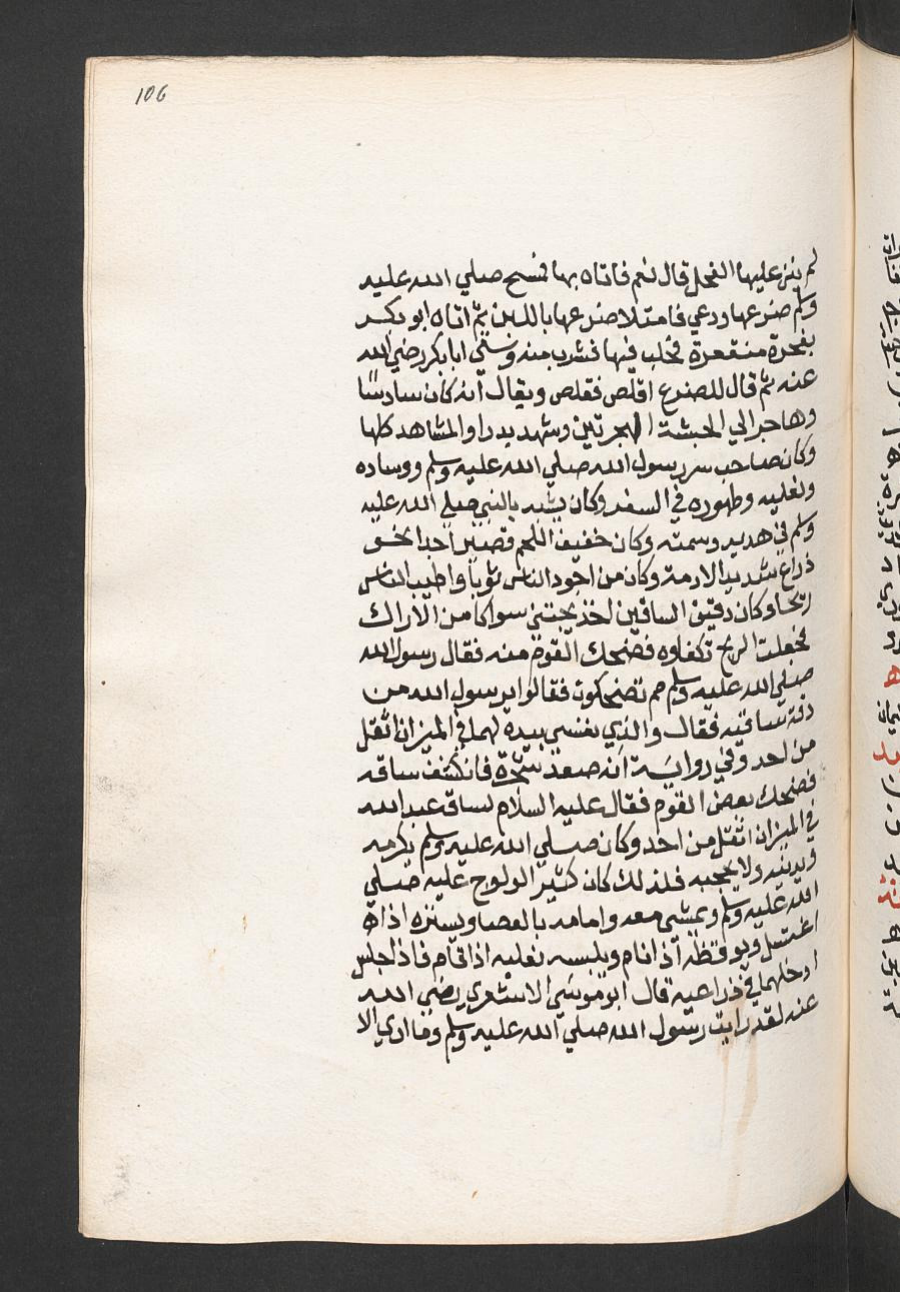 106
لم ينز عليها الفحل قال نعم فاتاه بها فمسح صلي الله عليه
وسلم ضرعها ودعي فامتلا ضرعها باللبن ثم اتاه ابو بكر
بفخرة منقعرة فحلب فيها فشرب منه وسقي ابا بكر رضي الله
عنه ثم قال للضرع اقلص فقلص ويقال انه كان سادسا
وهاجر الي الحبشة الهجرتين وشهد بدرا والمشاهد كلها
وكان صاحب سر رسول الله صلي الله عليه وسلم ووساده
ونعليه وطهوره في السفر وكان يشبه بالنبي صلي الله عليه
وسلم في هديه وسمته وكان خفيف اللحم قصير اجدا نحو
ذراع شديد الادمة وكان من اجود الناس ثوبا واطيب الناس
ريحا وكان دقيق الساقين اخذ يجتني سواكا من الاراك
فجعلت الريح تكفاوه فضحك القوم منه فقال رسول الله
صلي الله عليه وسلم مم تضحكون فقالوا يرسول الله من
دقة ساقيه فقال والذي نفسي بيده لهما في الميزان اثقل
من احد وفي رواية انه صعد شجرة فانكشف ساقه
فضحك بعض القوم فقال عليه السلام لساق عبد الله
في الميزان اثقل من احد وكان صلي الله عليه وسلم يكرمه
ويدنيه ولا يحجبه فلذلك كان كثير الولوج عليه صلي
الله عليه وسلم ويمشي معه وامامه بالعصا ويستره اذا
اغتسل ويوقظه اذا نام ويلبسه نعليه اذا قام فاذا جلس
ادخلهما في ذراعيه قال ابو موسي الاشعري رضي الله
عنه لقد رايت رسول الله صلي الله عليه وسلم وما اري الا